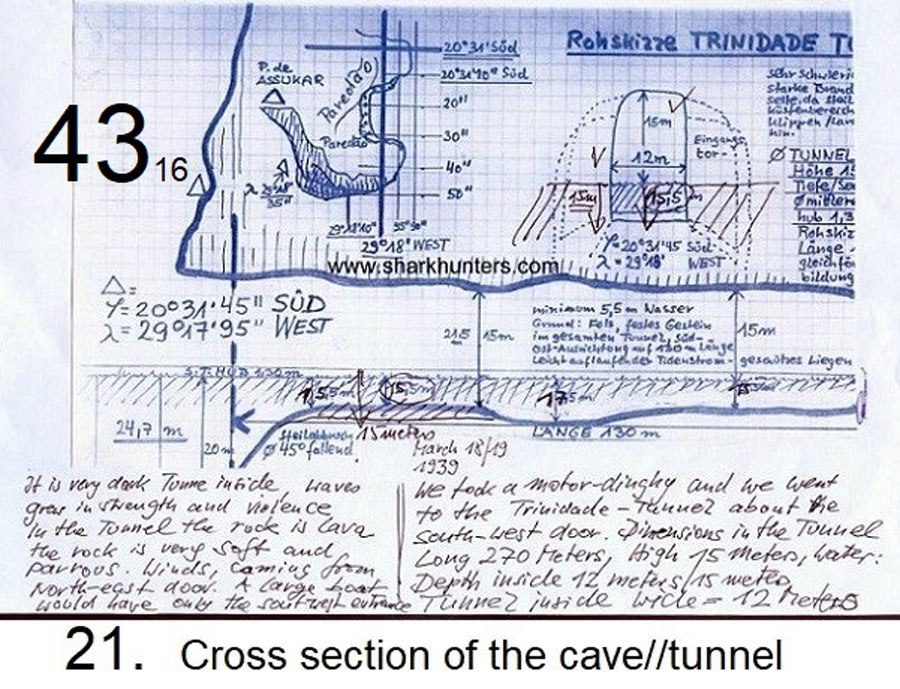 43 16
Rohskizze TRINIDADE T
20°31' Süd
20°31'10" Süd
20"
30"
40"
50"
P. de
ASSUKAR
Paredão
Paredão
29°18' WEST
Sehr schwieri
starke Brand
seite, da steil
küstenbereich
klippen /lan
hin.
Ø TUNNEL
Höhe 15
Tiefe/
Ø mittlere
hub 1,3
Rohskiz
Länge
gleichfö
bildung
15m
12m
Eingangs-
tor-
15m
15,5 m
φ=20°31'45 Süd
λ=29°18' WEST
www.sharkhunters.com
△=
φ=20°31'45" SÜD
λ=29°17'95" WEST
215
15m
minimum 5,5 m Wasser
Grund: Fels, festes Gestein
im gesamten Tunnel, süd-
ost-Ausrichtung auf 130 m Länge
Leicht auflaufender Tidenstrom-
gesamtes Liegen
15m
15,5m
15,5m
17,5m
24,7 m
20m
Steilabbruch
Ø 45° fallend
15 meters
LÄNGE 130 m
It is very dark Tunne inside, waves
grow in strength and violence
In the Tonnel the rock is lava
the rock is very soft and
parrous. Winds, caming from
North-east door. A large boat
would have only the southwest entrance
March 18/19
1939
We took a motor-dinghy and we went
to the Trinidade-Tunnel about the
south-west door. Dimensions in the Tunnel
Long 270 Meters, High 15 Meters, water:
Depth inside 12 meters/15 meters,
Tunnel inside wide = 12 Meters
21. Cross section of the cave//tunnel